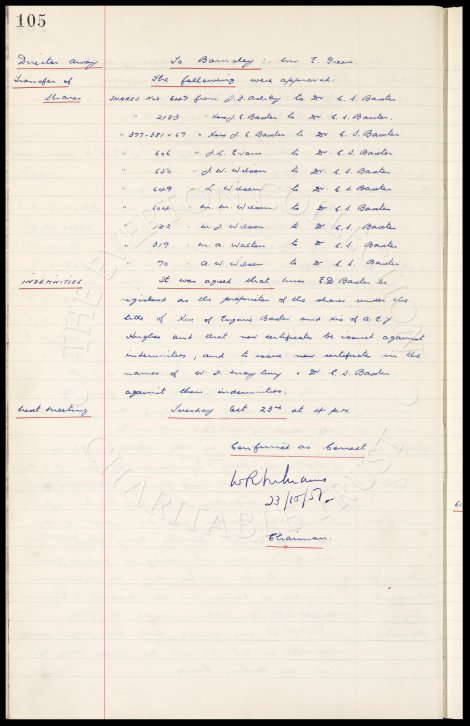 105
Director Away To Barnsley :- Mr E. Green.
Transfer of The following were approved.
Shares SHARES Nos 647 from J. F. Ashby to Dr C. S. Baxter
" 2183 " Exs J. E. Baxter to Dr C. S. Baxter.
" 377-381 + 67 " Exs J. E. Baxter to Dr C. S. Baxter
" 646 " J. L. Evans to Dr. C. S. Baxter
" J. W. Wilson to Dr C. S. Baxter
" 649 " L. Wilson to Dr C. S. Baxter
" M. M. Wilson to Dr C. S. Baxter
" 122 " M. J. Wilson to Dr C. S. Baxter
" 319 " M. A. Walton to Dr C. S. Baxter
" 70 " A. W. Wilson to Dr C. S. Baxter
INDEMNITIES It was agreed that Miss E.D. Baxter be
registered as the proprietor of the shares under the
title of Exs of Eugenie Baxter and Exs of A. E. J
Hughes and that new certificates be issued against
indemnities, and to issue new certificates in the
names of W. J. & Dr C. S. Baxter
against their indemnities.
Next Meeting Tuesday Oct 23rd at 4 P.M.
Confirmed as Correct
23/10/51
Chairman.
THE CHARITABLE TRUST